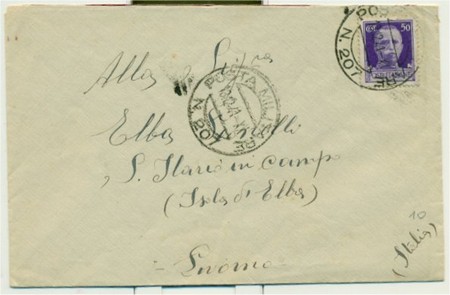 POSTA MILITARE N. 207
CENT. 50
Alla Sig.ra
POSTA MILITARE N. 207
Elba
S. Ilario in Campo
(Isola d'Elba)
Livorno
10
(Italia)